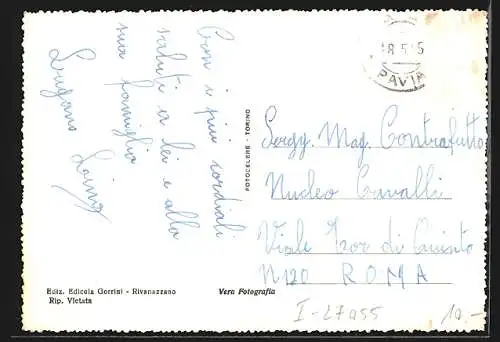 Con i più cordiali
saluti a lei e alla
sua famiglia
Lugano
8.5. 5
PAVIA
FOTOCELERE - TORINO
Sergg. Mag. Contrafatto
Nucleo Cavalli
Viale Tor di Quinto
N 120 ROMA
Ediz. Edicola Gorrini - Rivanazzano
Rip. Vietata
Vera Fotografia
I-27055
10.-